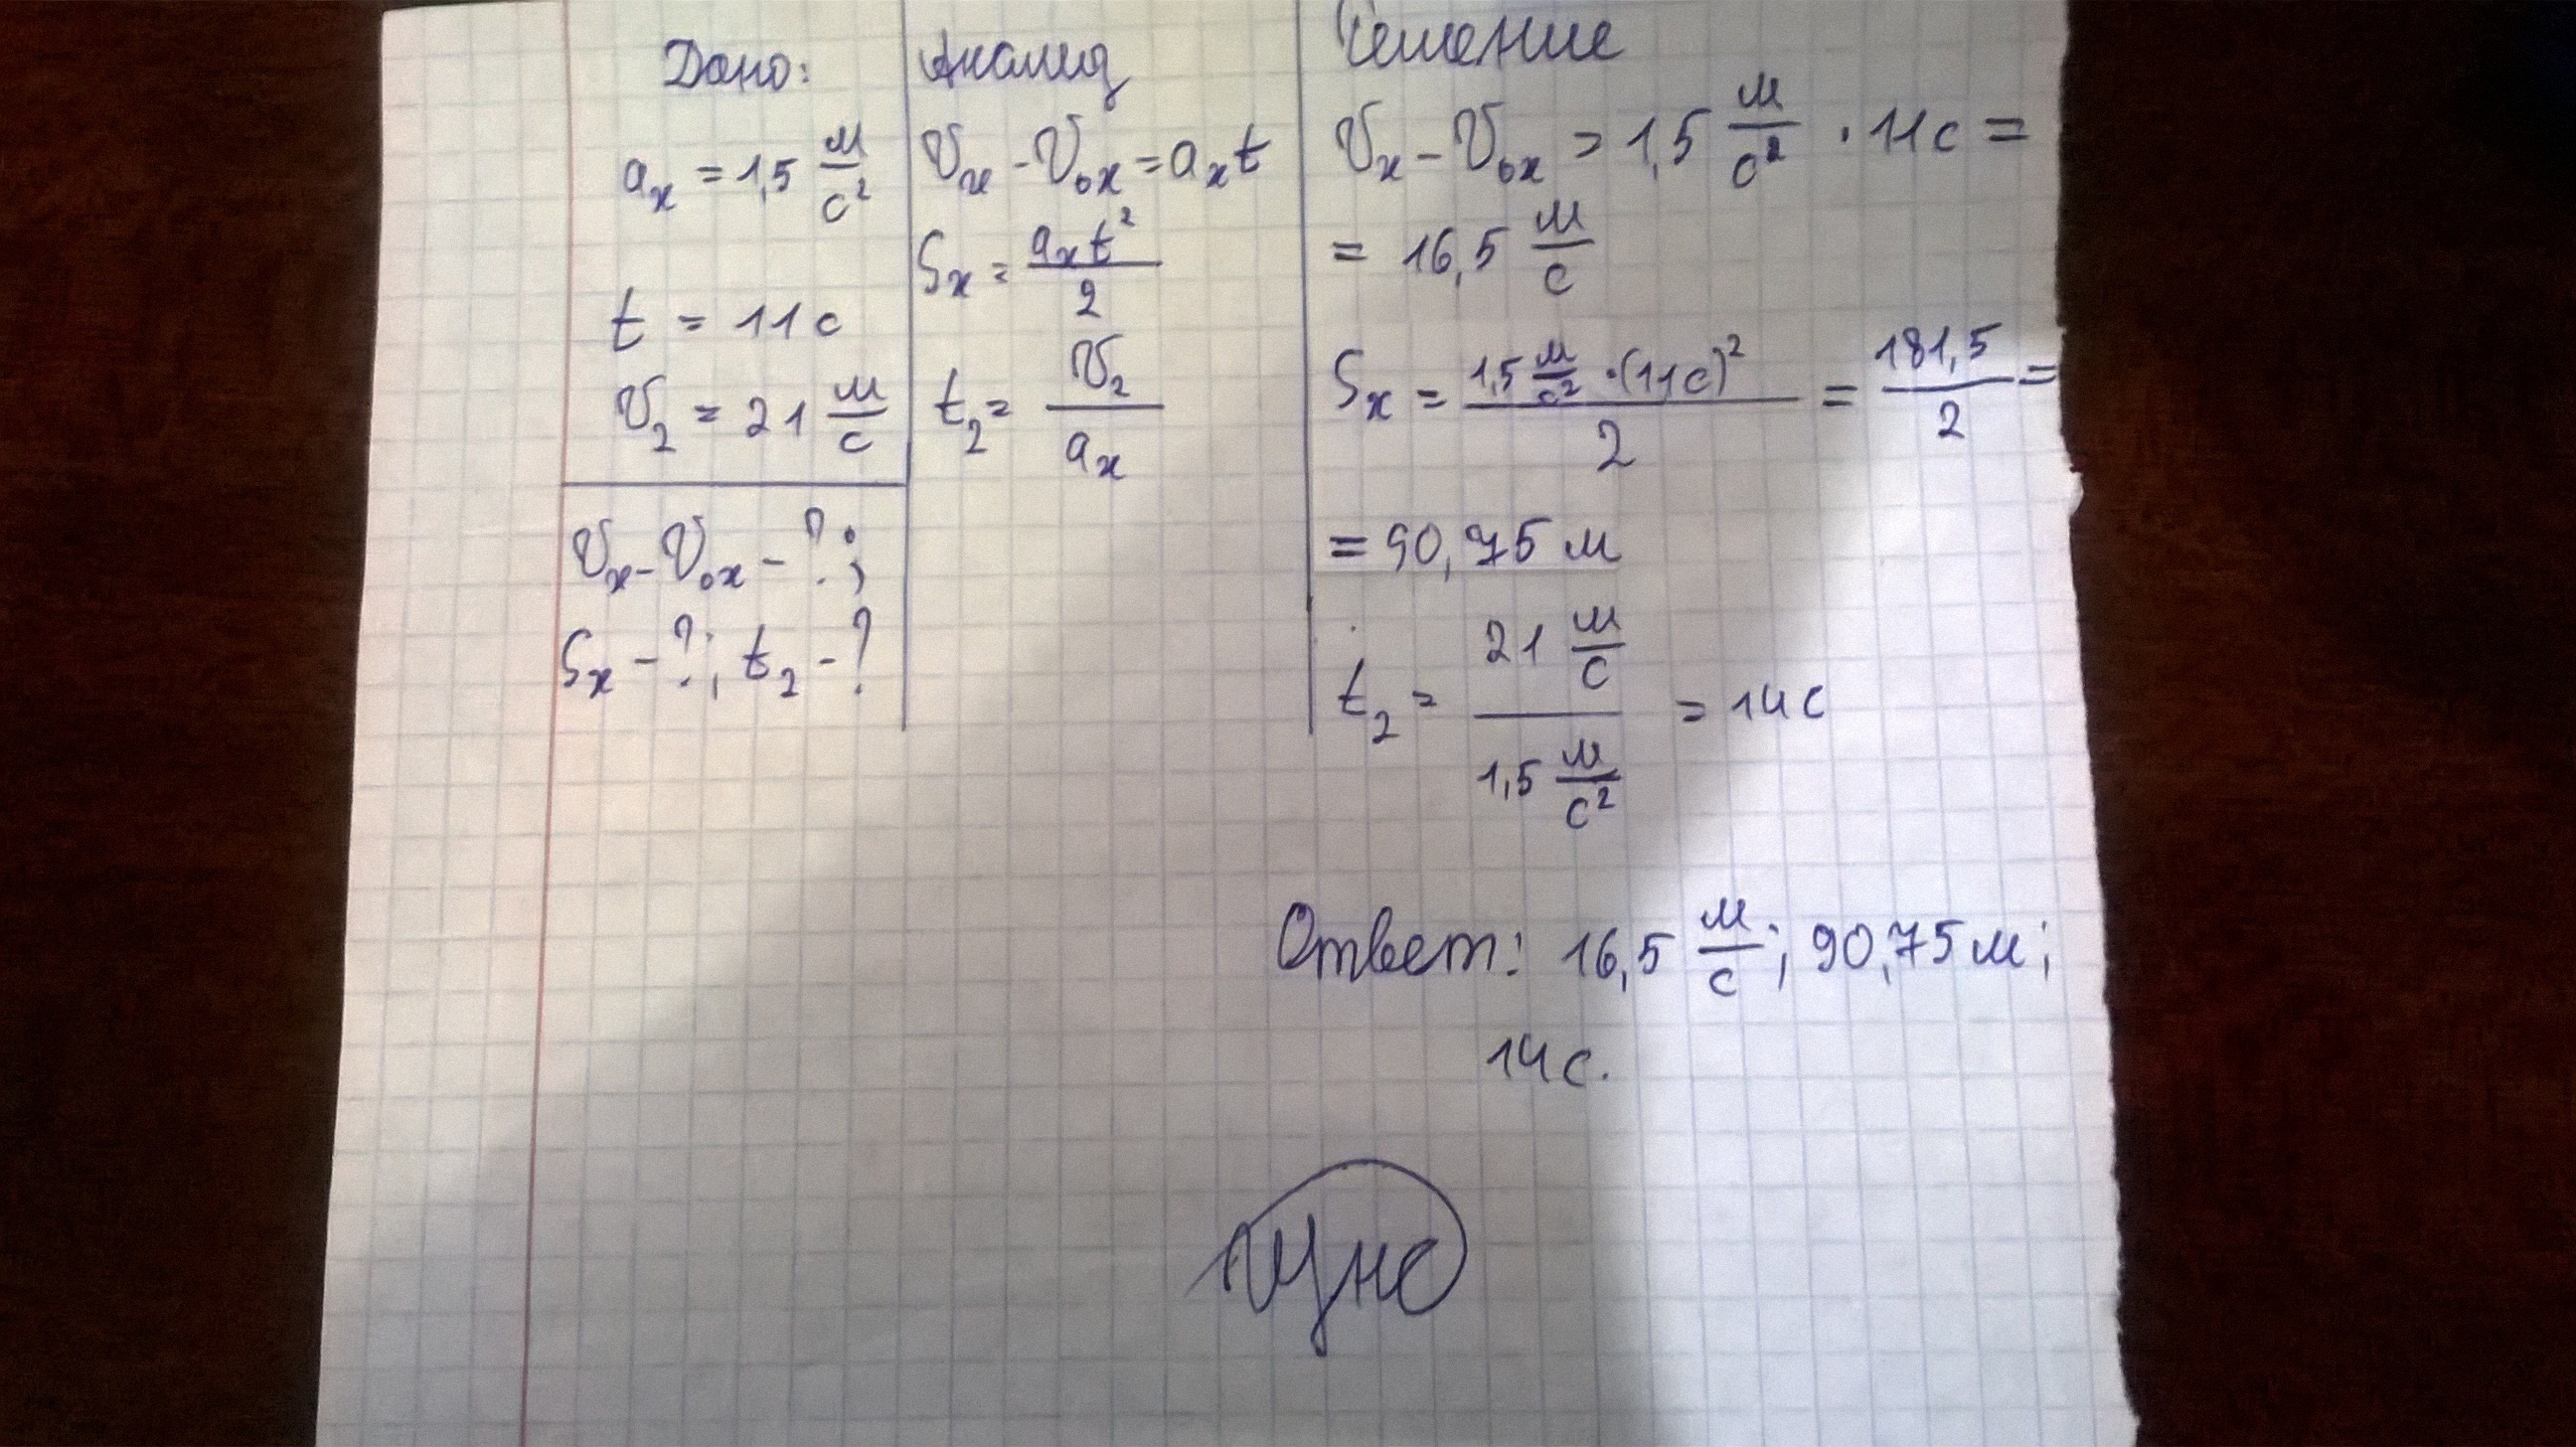 Дано:
a_x = 1,5 м/с²
t = 11 с
V₂ = 21 м/с
V_x - V_ox - ?;
S_x - ?; t₂ - ?
Анализ
V_x - V_ox = a_x t
S_x = a_x t² / 2
t₂ = V₂ / a_x
Решение
V_x - V_ox = 1,5 м/с² · 11 с =
= 16,5 м/с
S_x = 1,5 м/с² · (11 с)² / 2 = 181,5 / 2 =
= 90,75 м
t₂ = 21 м/с / 1,5 м/с² = 14 с
Ответ: 16,5 м/с; 90,75 м;
14 с.